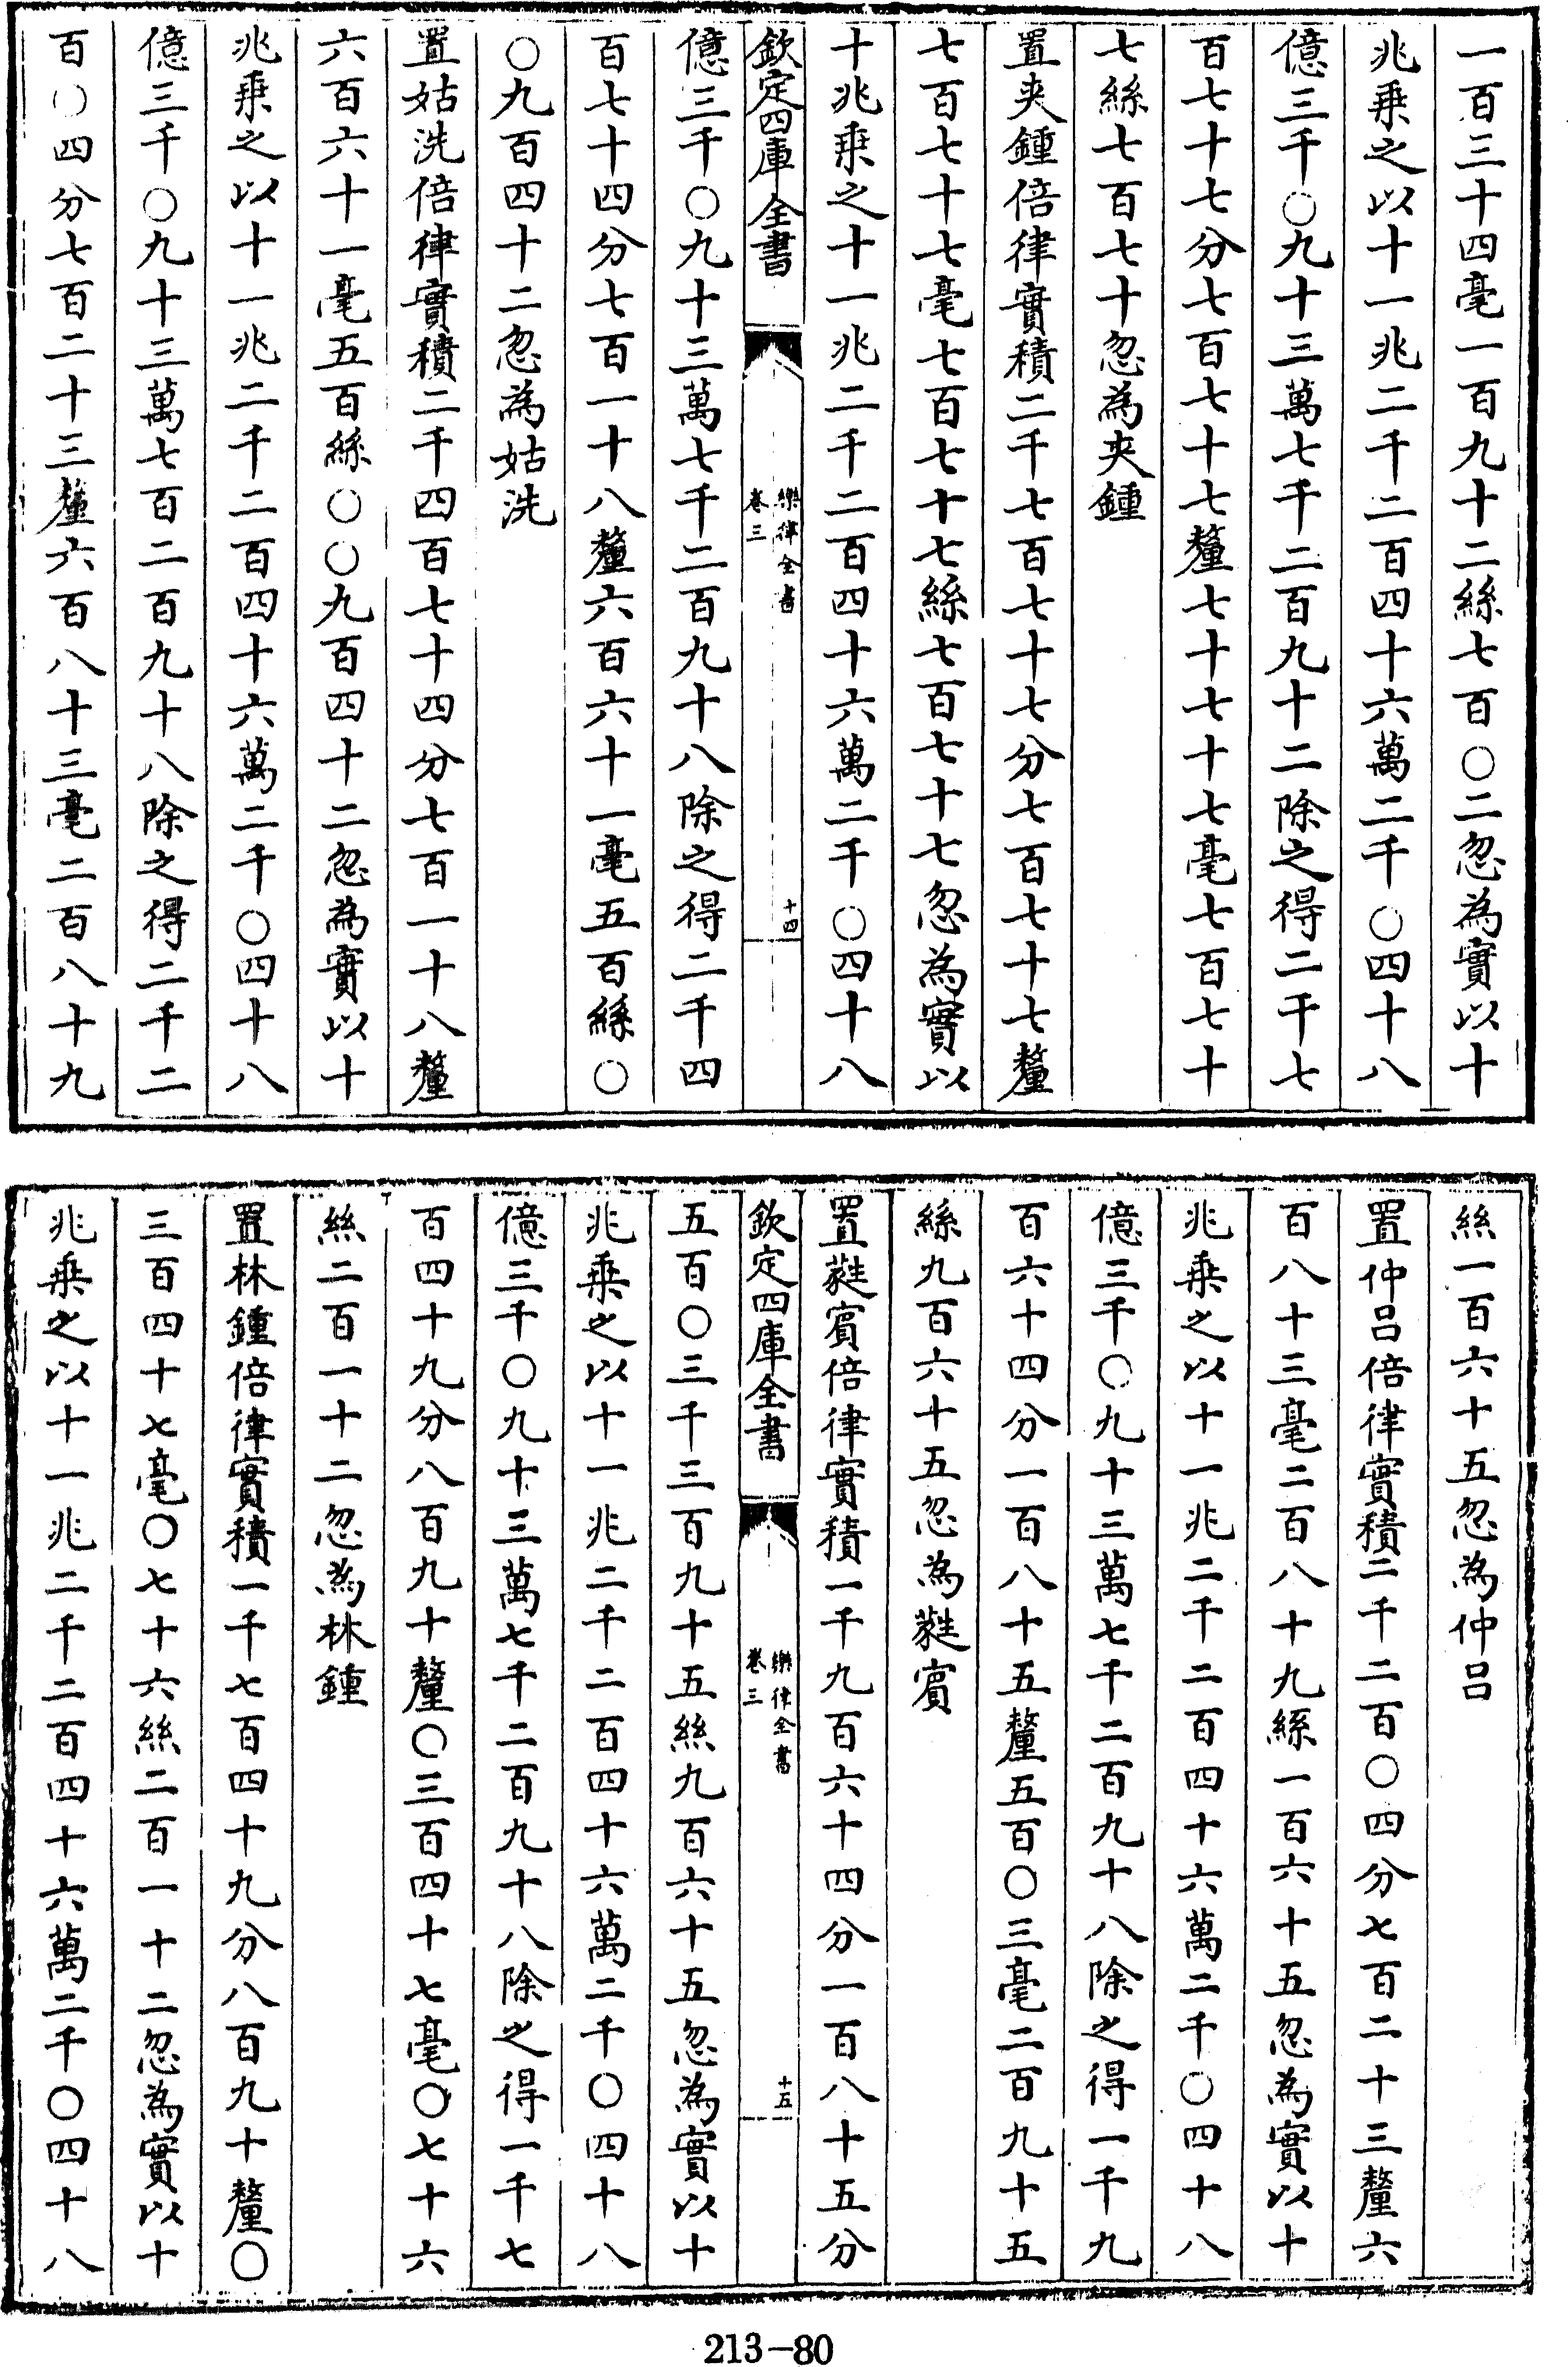 一百三十四毫一百九十二絲七百〇二忽為實以十
兆乘之以十一兆二千二百四十六萬二千〇四十八
億三千〇九十三萬七千二百九十二除之得二千七
百七十七分七百七十七釐七十七七毫七百七十
七絲七百七十忽為夾鍾
置夾鍾倍律實積二千七百七十七分七百七十七釐
七百七十七毫七百七十七絲七百七十七忽為實以
十兆乘之十一兆二千二百四十六萬二千〇四十八
欽定四庫全書
樂律全書
卷三
十四
億三千〇九十三萬七千二百九十八除之得二千四
百七十四分七百一十八釐六百六十一毫五百絲〇
〇九百四十二忽為姑洗
置姑洗倍律實積二千四百七十四分七百一十八釐
六百六十一毫五百絲〇〇九百四十二忽為實以十
兆乘之以十一兆二千二百四十六萬二千〇四十八
億三千〇九十三萬七百二百九十八除之得二千二
百〇四分七百二十三釐六百八十三毫二百八十九
絲一百六十五忽為仲呂
置仲呂倍律實積二千二百〇四分七百二十三釐六
百八十三毫二百八十九絲一百六十五忽為實以十
兆乘之以十一兆二千二百四十六萬二千〇四十八
億三千〇九十三萬七千二百九十八除之得一千九
百六十四分一百八十五釐五百〇三毫二百九十五
絲九百六十五忽為蕤賓
置蕤賓倍律實積一千九百六十四分一百八十五分
欽定四庫全書
樂律全書
卷三
十五
五百〇三千三百九十五絲九百六十五忽為實以十
兆乘之以十一兆二千二百四十六萬二千〇四十八
億三千〇九十三萬七千二百九十八除之得一千七
百四十九分八百九十釐〇三百四十七毫〇七十六
絲二百一十二忽為林鍾
置林鍾倍律實積一千七百四十九分八百九十釐〇
三百四十七毫〇七十六絲二百一十二忽為實以十
兆乘之以十一兆二千二百四十六萬二千〇四十八
213-80